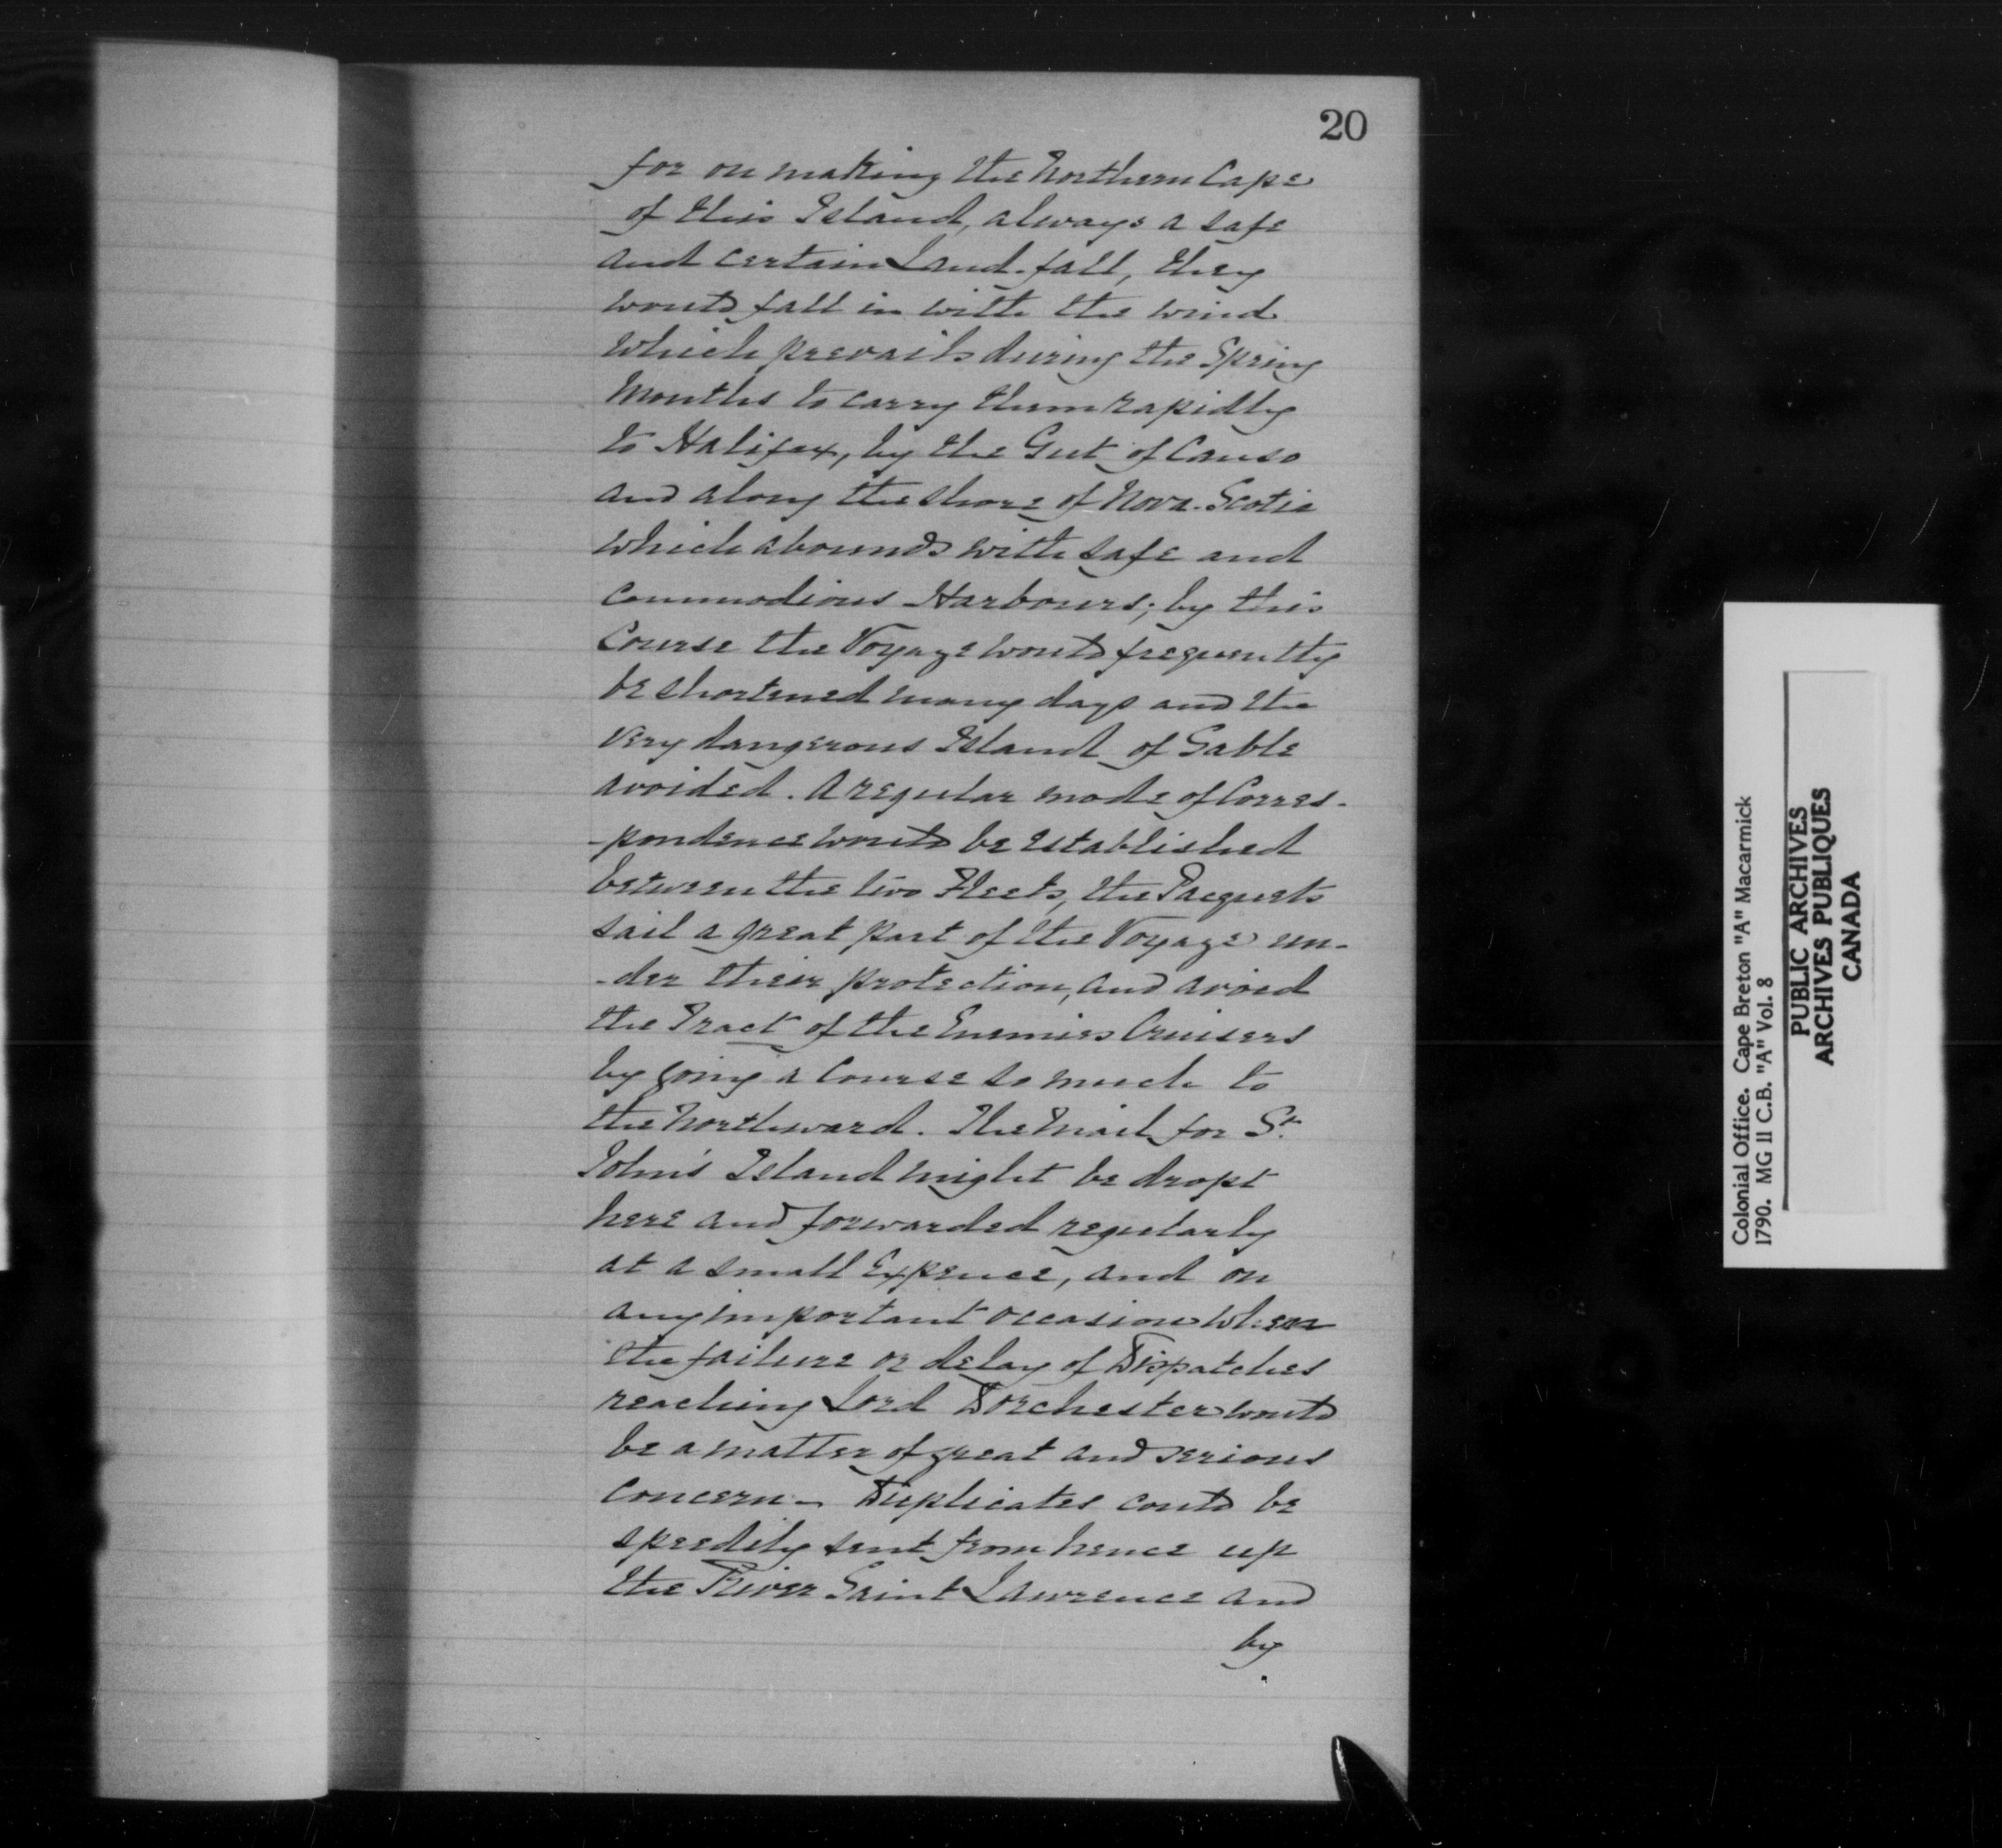 20
for on making the Northern Cape
of this Island, always a safe
and certain Land-fall, they
would fall in with the wind
which prevails during the Spring
Months to carry them rapidly
to Halifax, by the Gut of Canso
and along the shore of Nova-Scotia
which abounds with safe and
commodious Harbours; by this
Course the Voyage would frequently
be shortened many days and the
very dangerous Island of Sable
avoided. A regular mode of Corres-
-pondence would be established
between the two Fleets, the Pacquets
sail a great part of the Voyage un-
-der their protection, and avoid
the Tract of the Enemies Cruisers
by going a Course so much to
the Northward. The Mail for St.
John's Island might be dropt
here and forwarded regularly
at a small Expence, and on
any important occasion when
the failure or delay of Dispatches
reaching Lord Dorchester would
be a matter of great and serious
concern- Duplicates could be
speedily sent from hence up
the River Saint Lawrence and
by
Colonial Office. Cape Breton "A" Macarmick
1790. MG 11 C.B. "A" Vol. 8
PUBLIC ARCHIVES
ARCHIVES PUBLIQUES
CANADA